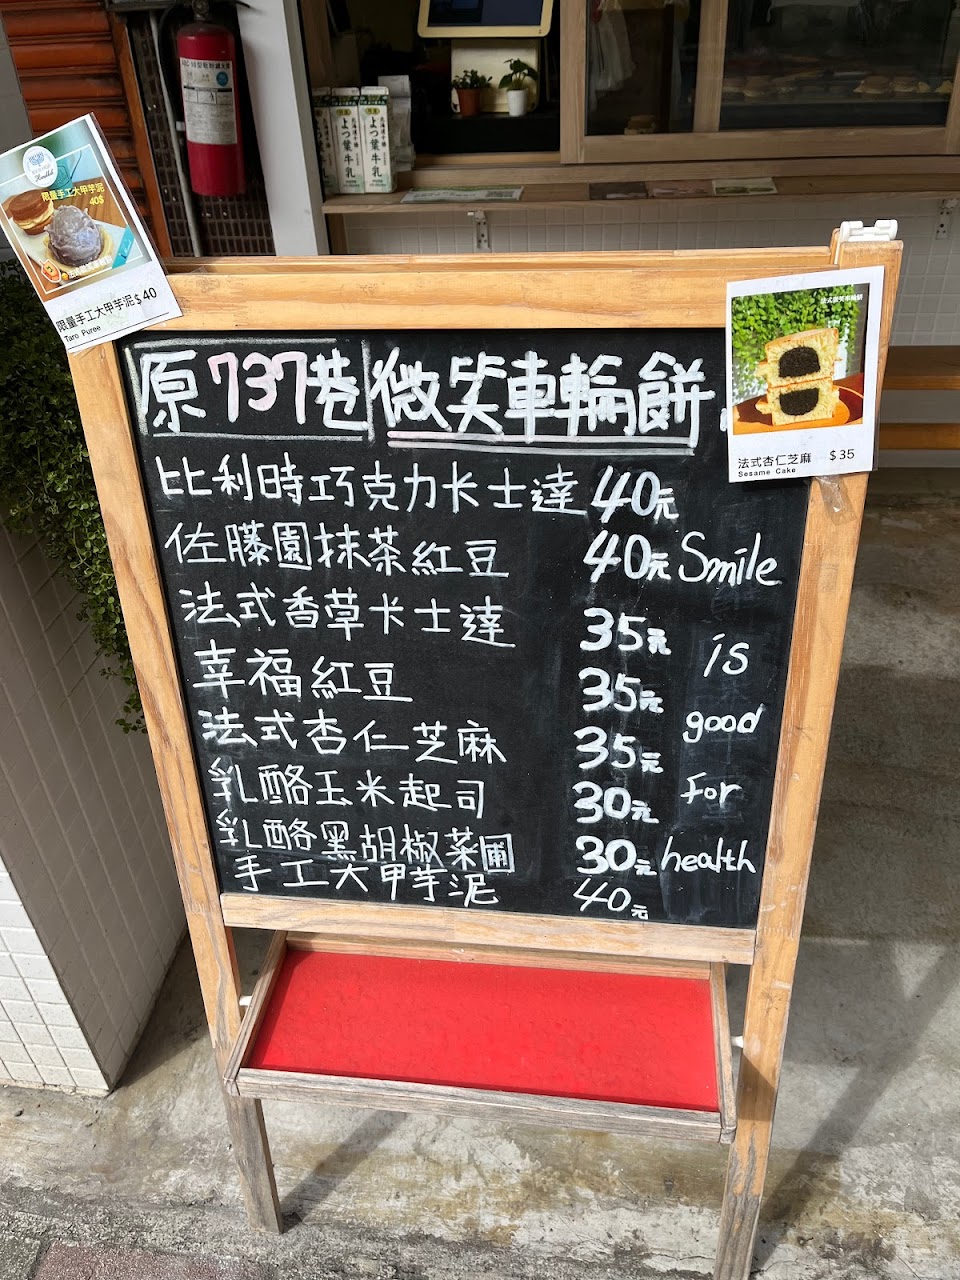 限量手工大甲芋泥
40$
限量手工大甲芋泥$40
Taro Puree
北海道十勝
よつ葉牛乳
北海道十勝
よつ葉牛乳
法式杏仁芝麻 $35
Sesame Cake
原737巷 微笑車輪餅
比利時巧克力卡士達 40元
佐藤園抹茶紅豆 40元
法式香草卡士達 35元
幸福紅豆 35元
法式杏仁芝麻 35元
乳酪玉米起司 30元
乳酪黑胡椒菜圃 30元
手工大甲芋泥 40元
Smile
is
good
For
health